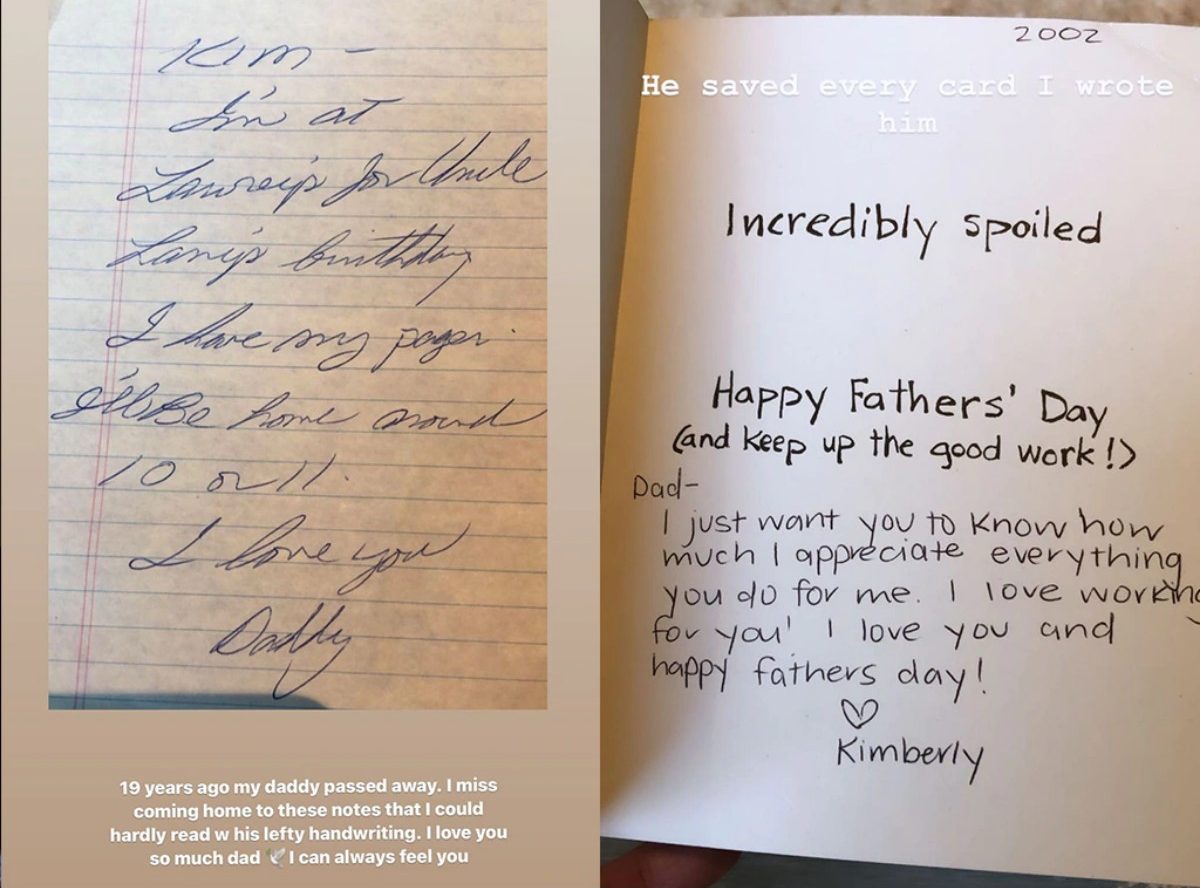 Kim -
I'm at
Lawrey's for Uncle
Larry's birthday
I have my pager.
I'll Be home around
10 or 11.
I love you
Daddy
19 years ago my daddy passed away. I miss
coming home to these notes that I could
hardly read w his lefty handwriting. I love you
so much dad 🕊️ I can always feel you
2002
He saved every card I wrote
him
Incredibly spoiled
Happy Fathers' Day
(and keep up the good work!)
Dad-
I just want you to know how
much I appreciate everything
you do for me. I love working
for you! I love you and
happy fathers day!
♡
Kimberly